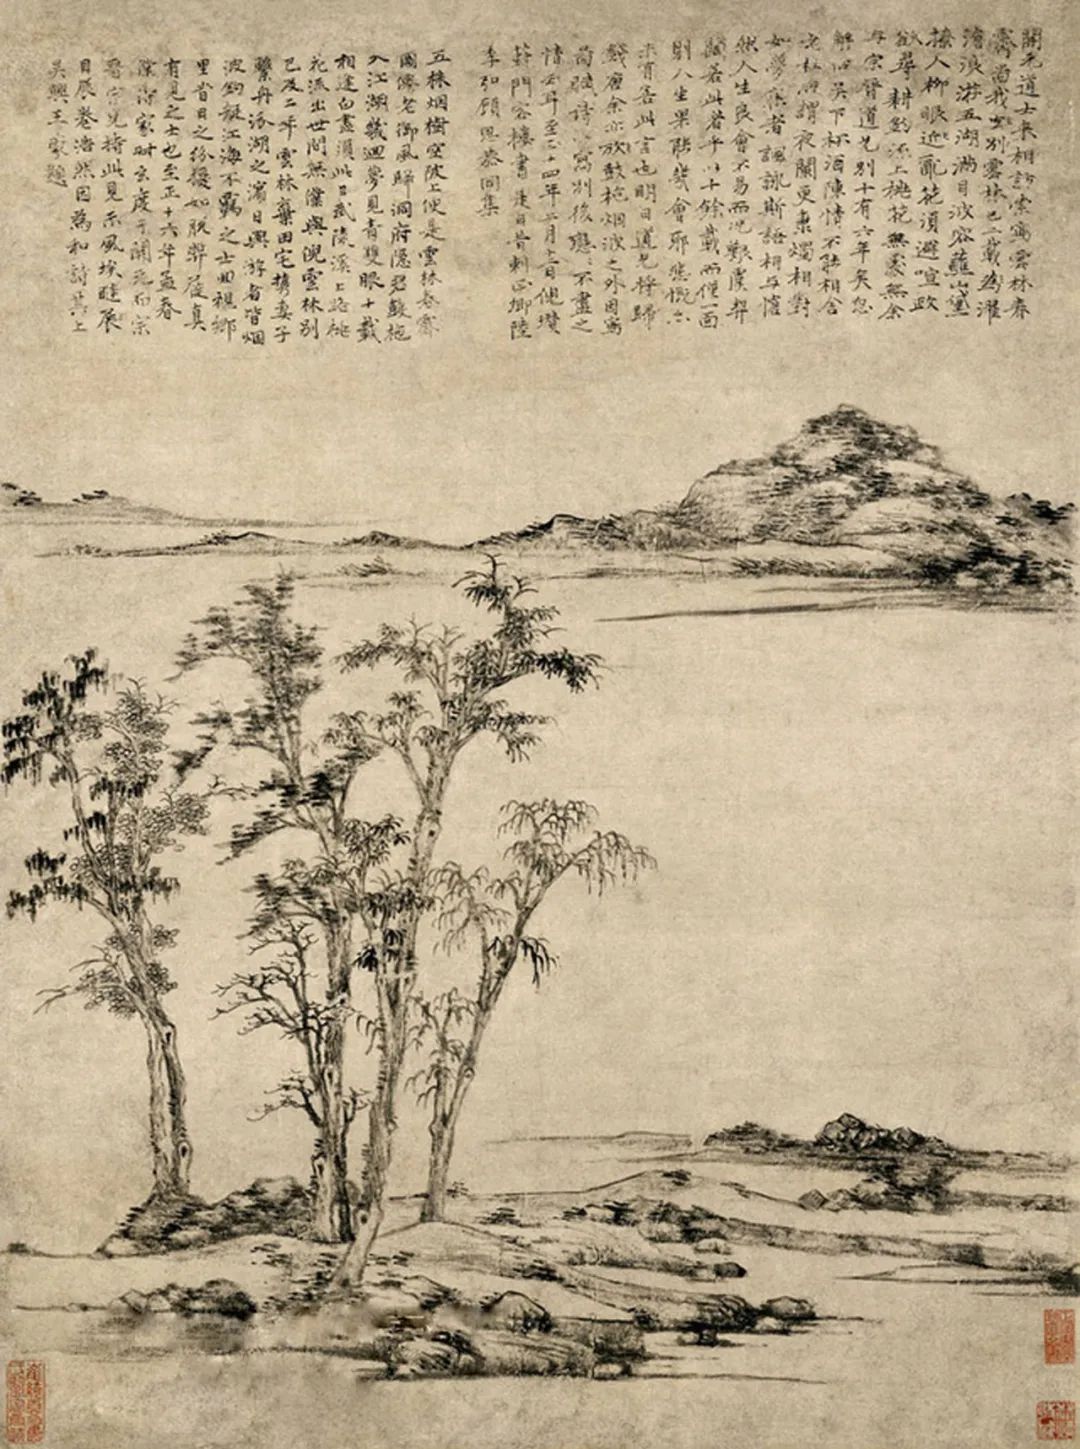 開元道士來相訪索寫雲林春
霽尚我出別雲林已二載為濯
滄浪游五湖滿目波容蘸山黛
撩人柳眼迎亂花須避喧政
欲尋耕釣上桃花無處無余
與宗晉道兄別十有六年矣忽
解吳下杯酒陳情不能相舍
老杜所謂夜闌更秉燭相對
如夢寐者諷詠斯語相與慨
然人生良會不易而況艱虞契
闊若此者乎以十餘載而僅一面
則人生果能幾會耶悲慨亦
未有若此言也明日道兄將歸
錢唐余亦放鼓枻烟波之外因寫
圖賦詩以寓別後戀戀不盡之
情云耳至正十四年二月十一日倪瓚
葑門客樓書是日昔刺正卿陸
季弘顧思恭同集
五株烟樹空陂上便是雲林春霽
圖儔老御風歸洞府隱君鼓枻
入江湖幾迴夢見青雙眼十載
相逢白盡鬚此日武陵溪上路桃
花流出世間無僕與倪雲林別
已及二年雲林棄田宅携妻子
繫舟汾湖之濱日與游者皆烟
波釣艇江海不羈之士回視鄉
里昔日之紛擾如脫弊屣真
有見之士也至正十六年孟春
僕家玄度于開元而宗
晋兄持此見示風埃
目展卷浩然因為和詩其上
吳興王蒙題